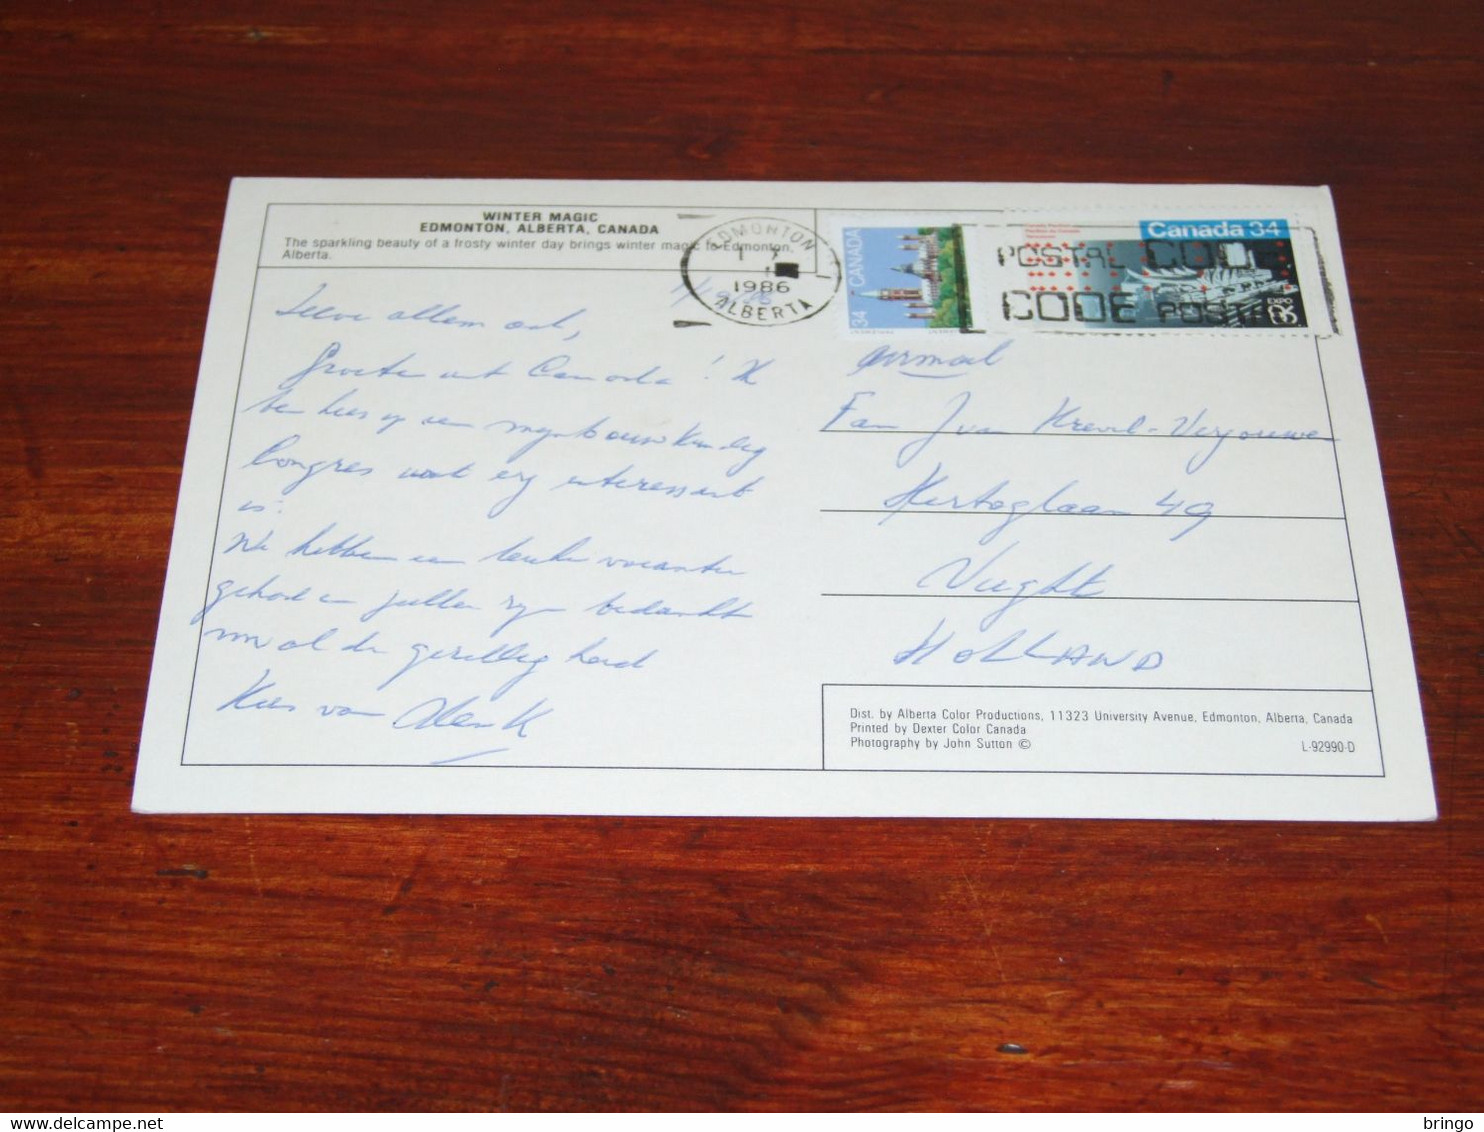 WINTER MAGIC
EDMONTON, ALBERTA, CANADA
The sparkling beauty of a frosty winter day brings winter magic to Edmonton,
Alberta.
EDMONTON
1986
ALBERTA
34 CANADA
Canada 34
EXPO
86
POSTAL CODE
CODE POSTAL
Lieve allemaal,
Groeten uit Canada! Ik
ben hier op een mijnbouwkundig
Congres wat erg interessant
is.
We hebben een leuke vacantie
gehad en jullie zijn bedankt
voor al de gezelligheid
Kees van
airmail
Fam J van - Vergouwen
Hertoglaan 49
Vught
HOLLAND
Dist. by Alberta Color Productions, 11323 University Avenue, Edmonton, Alberta, Canada
Printed by Dexter Color Canada
Photography by John Sutton ©
L-92990-D
bringo